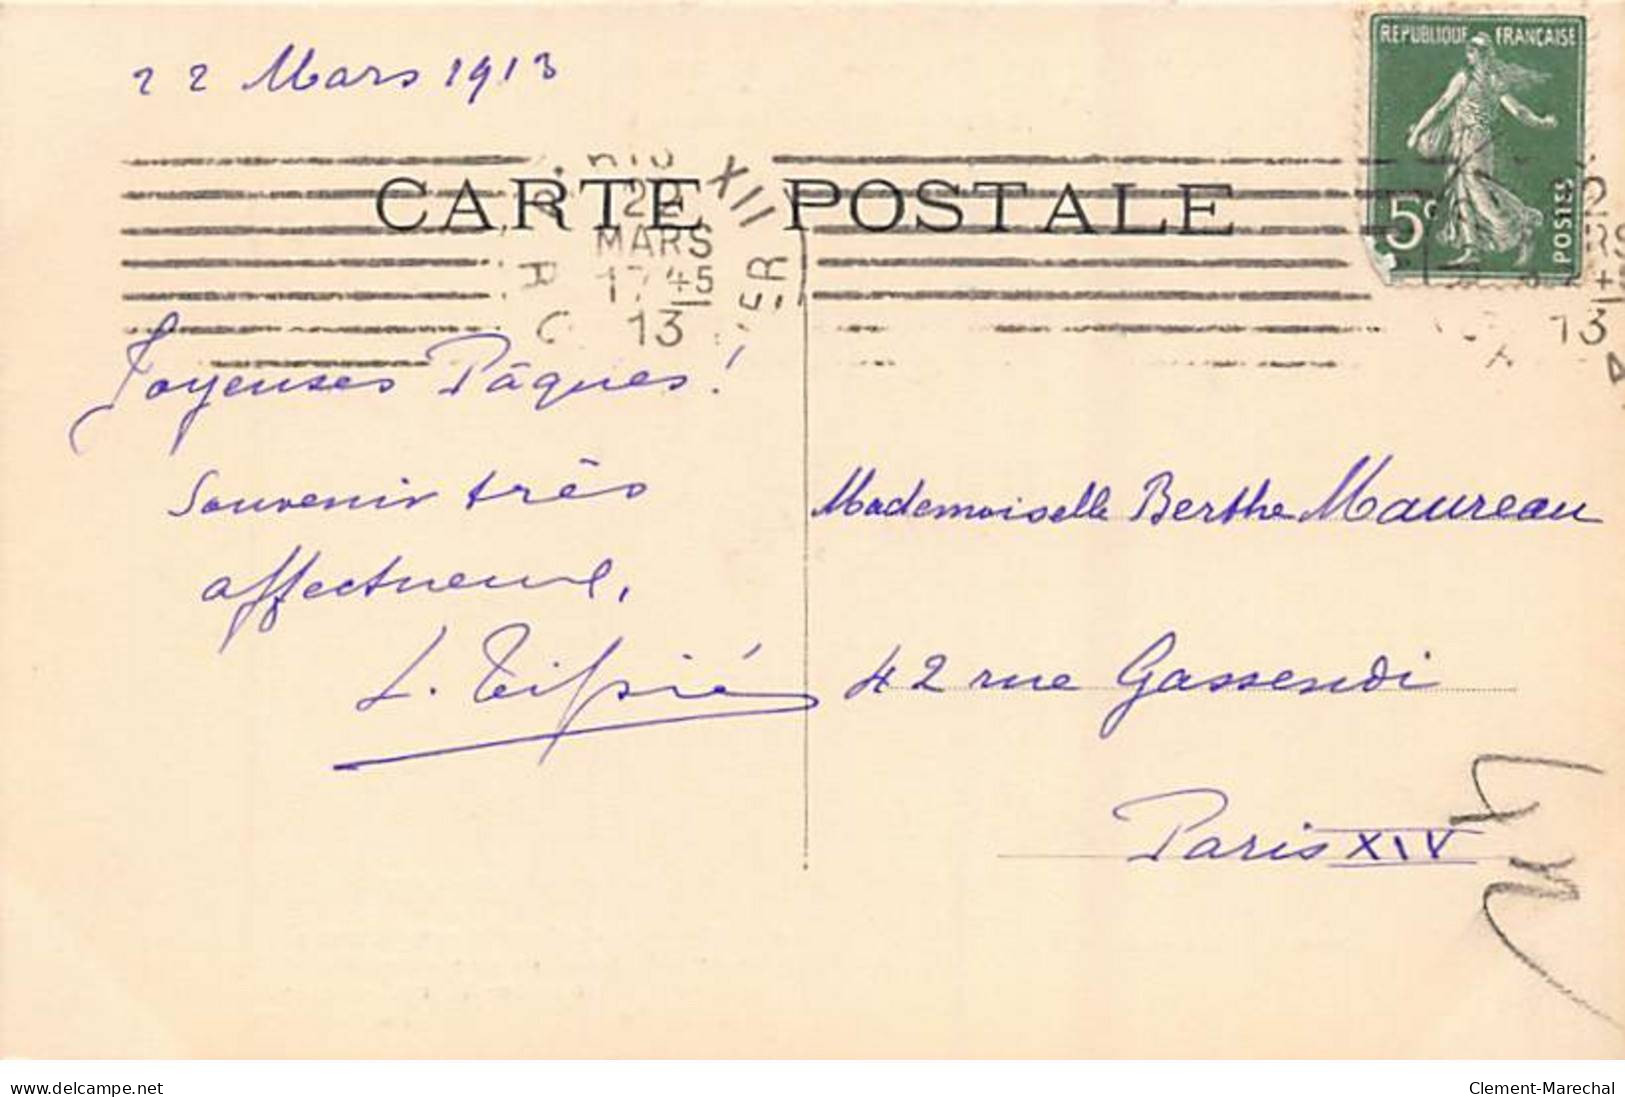 22 Mars 1913
REPUBLIQUE FRANÇAISE
5c
POSTES
CARTE POSTALE
XII
22
MARS
17 45
13
Joyeuses Pâques !
Souvenir très
affectueux,
L.
Mademoiselle Berthe Maureau
42 rue Gassendi
Paris XIV
www.delcampe.net
Clement-Marechal